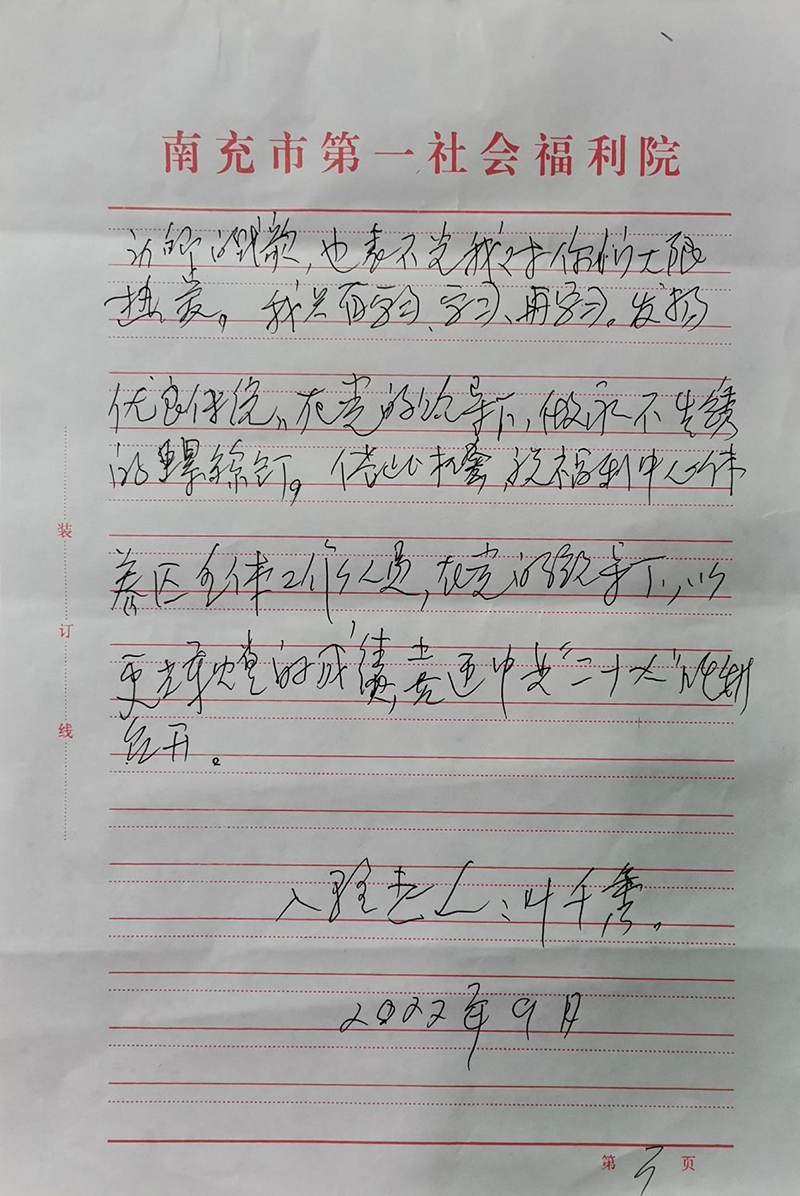 南充市第一社会福利院
的赞歌,也表不完我对你们无限
热爱。我只有学习、学习、再学习。发扬
优良传统,在党的领导下,做永不生锈
的螺丝钉。借此机会,祝福利中心休
养区全体工作人员,在党的领导下,以
更辉煌的成绩,喜迎中共“二十大”胜利
召开。
入住老人:叶千秀。
2022年9月
装
订
线
第 页